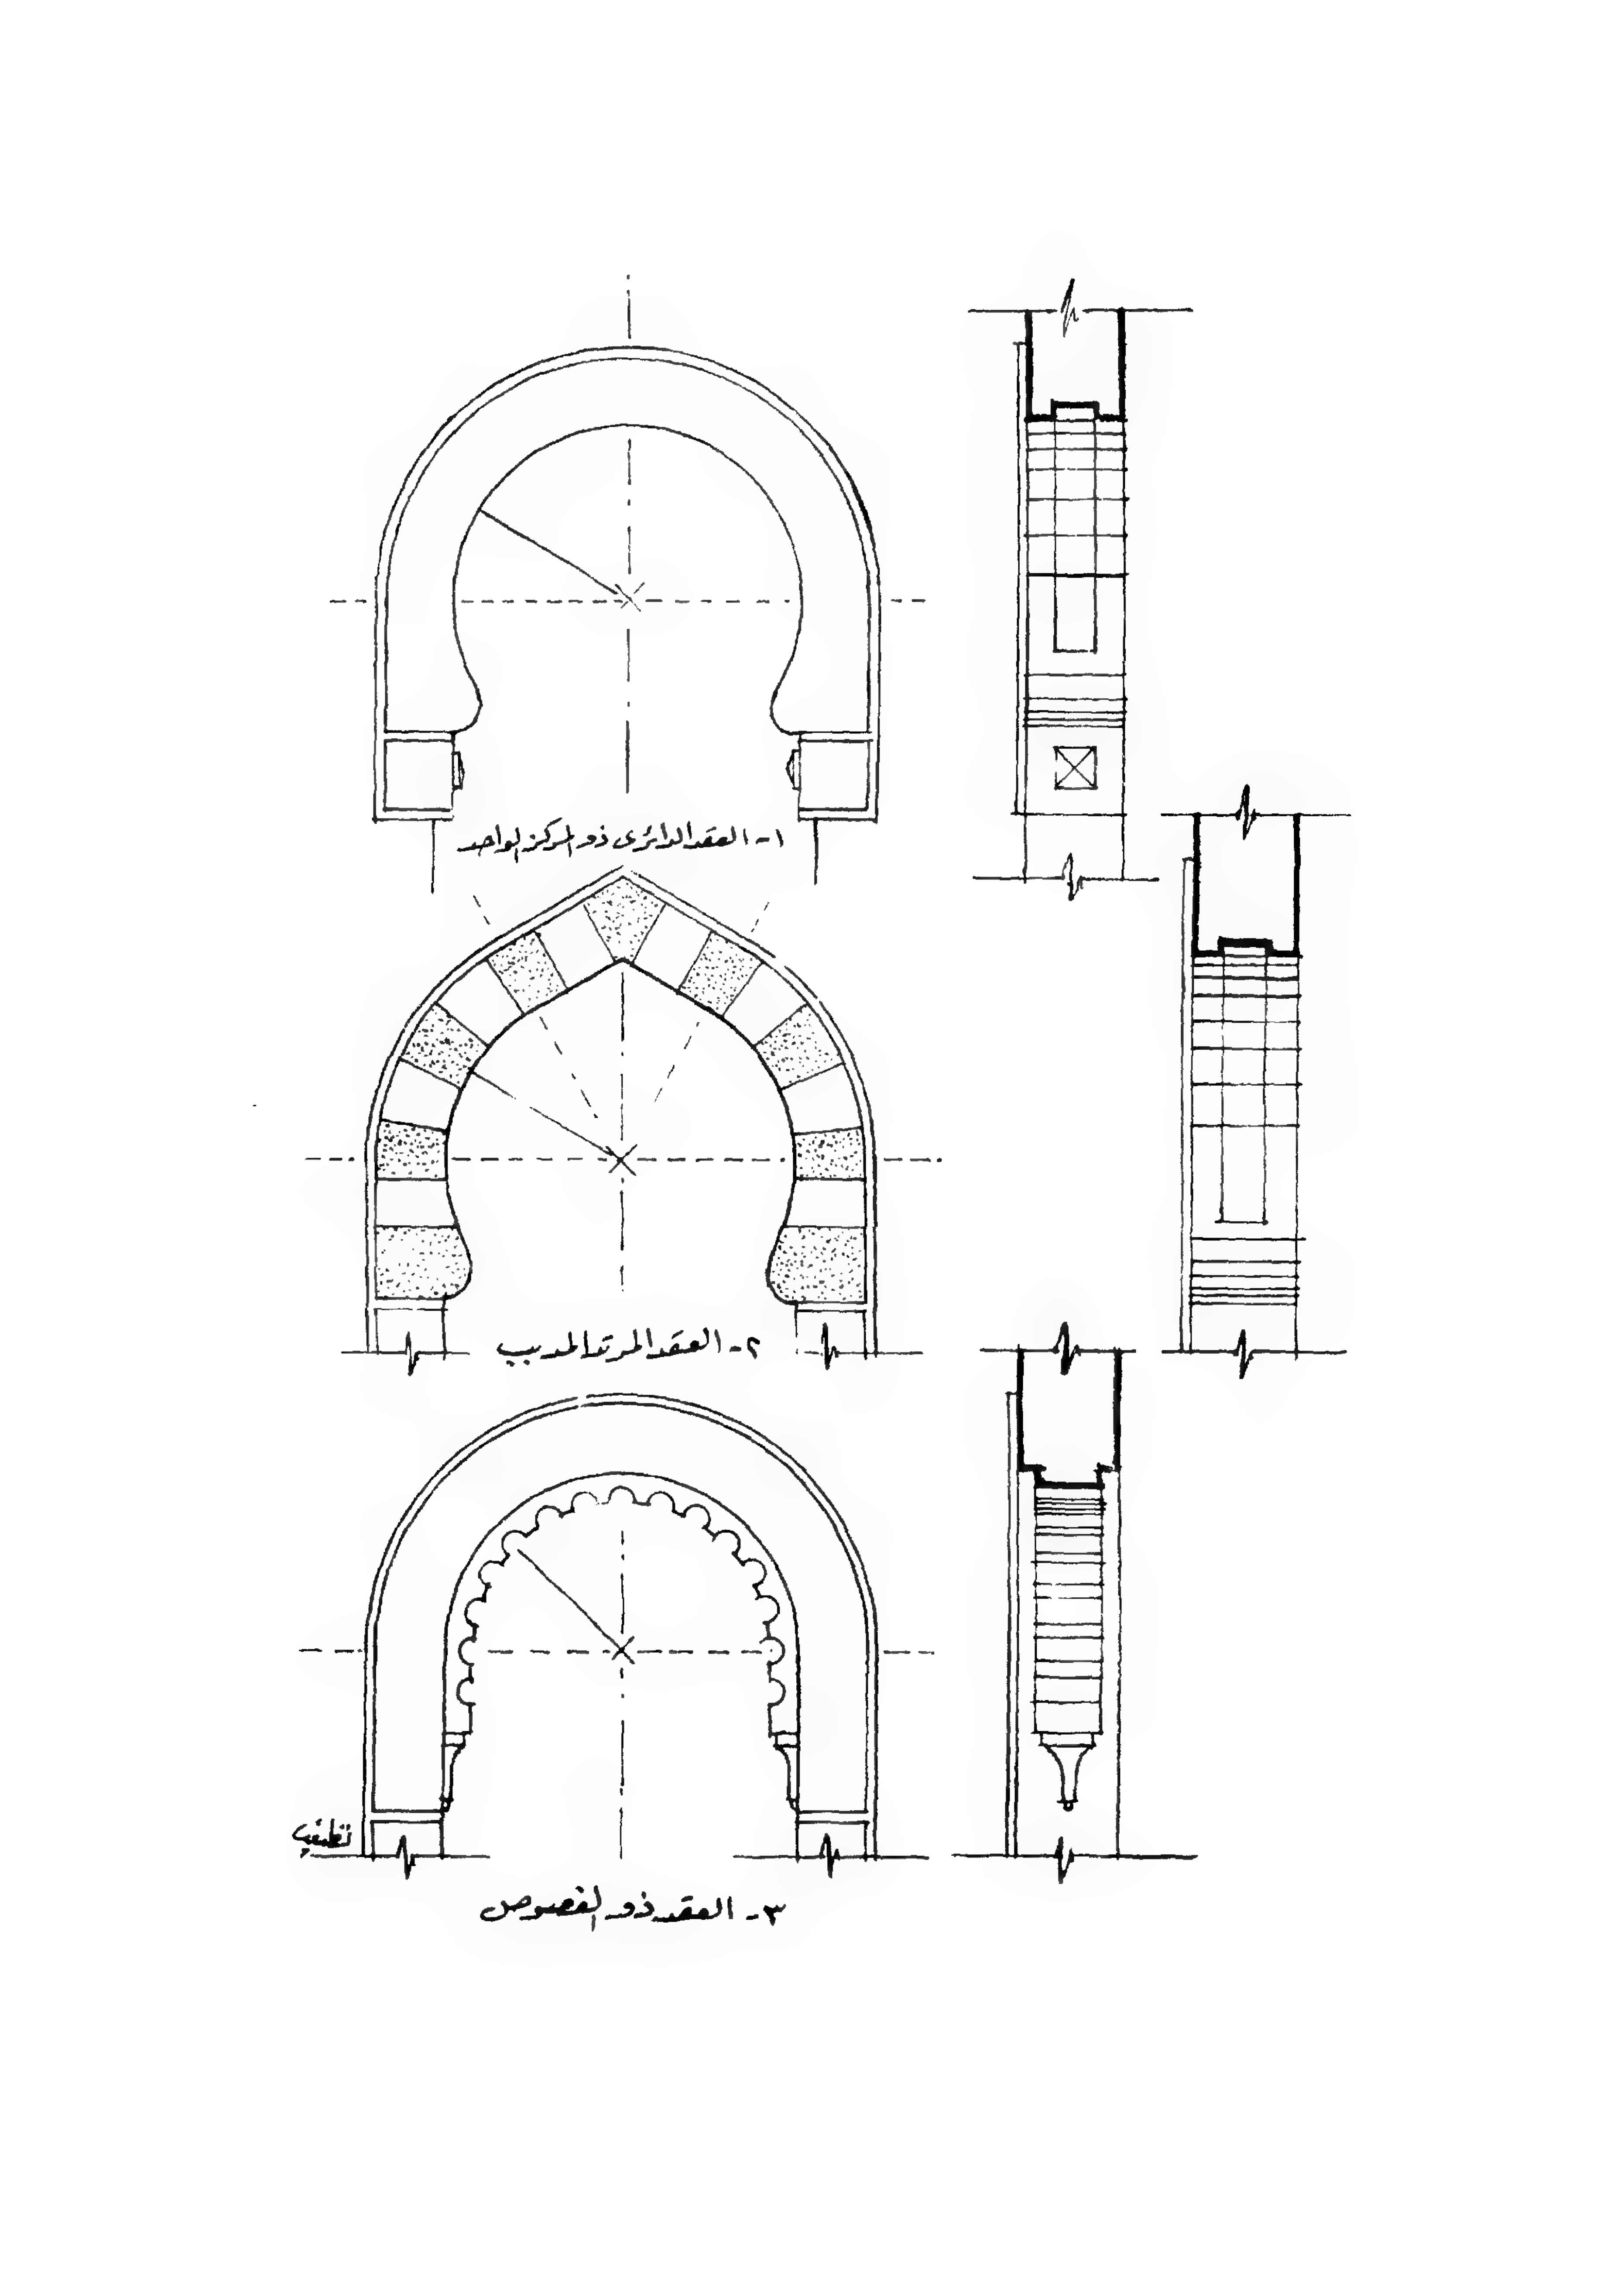 ١- العقد الدائرى ذو المركز الواحد
٢- العقد المرتد المدبب
تطبيق
٣- العقد ذو الفصوص